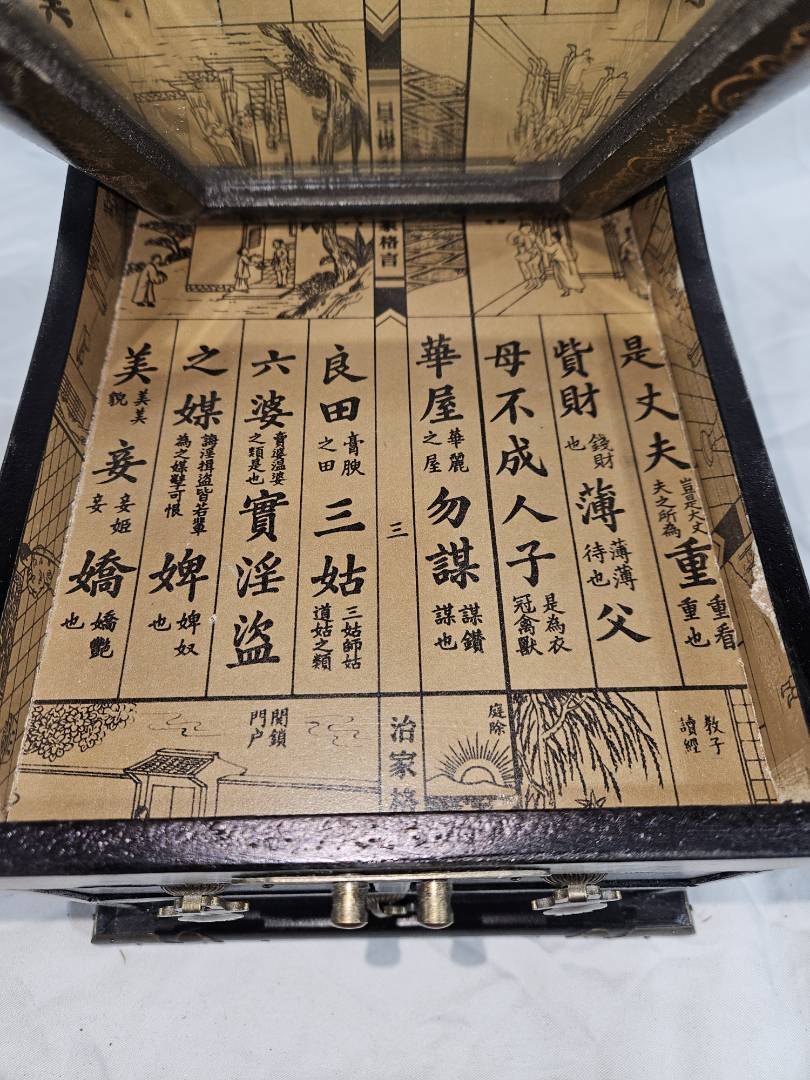 家格言
是丈夫豈是大丈夫之所為重重看重也
貲財錢財也薄薄薄待也父
母不成人子是為衣冠禽獸
華屋華麗之屋勿謀謀鑽謀也
三
良田膏腴之田三姑三姑師姑道姑之類
六婆賣婆溫婆之類是也實淫盜
之媒誨淫揖盜皆若輩為之媒孽可恨婢婢奴也
美美美貌妾妾姬妾嬌嬌艷也
教子
讀經
庭除
治家格
関鎖
門户